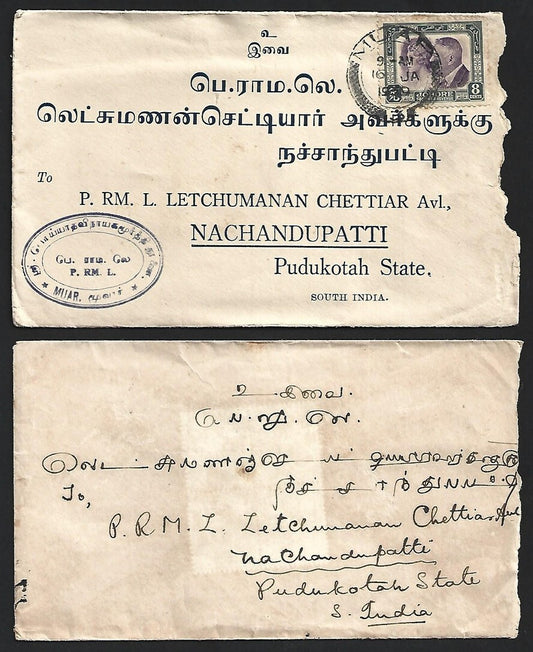 உ
இவை
பெ.ராம.லெ.
லெட்சுமணன்செட்டியார் அவர்களுக்கு
நச்சாந்துபட்டி
To
P. RM. L. LETCHUMANAN CHETTIAR Avl.,
NACHANDUPATTI
Pudukotah State,
SOUTH INDIA.
பெ. ராம. லெ
P. RM. L.
★ MUAR, மூவார் ★
MUAR
JA
JOHORE
8
CENTS
உ இவை.
To,
P. R M. L. Letchumanan Chettiar Avl
Nachandupatti
Pudukotah State
S. India